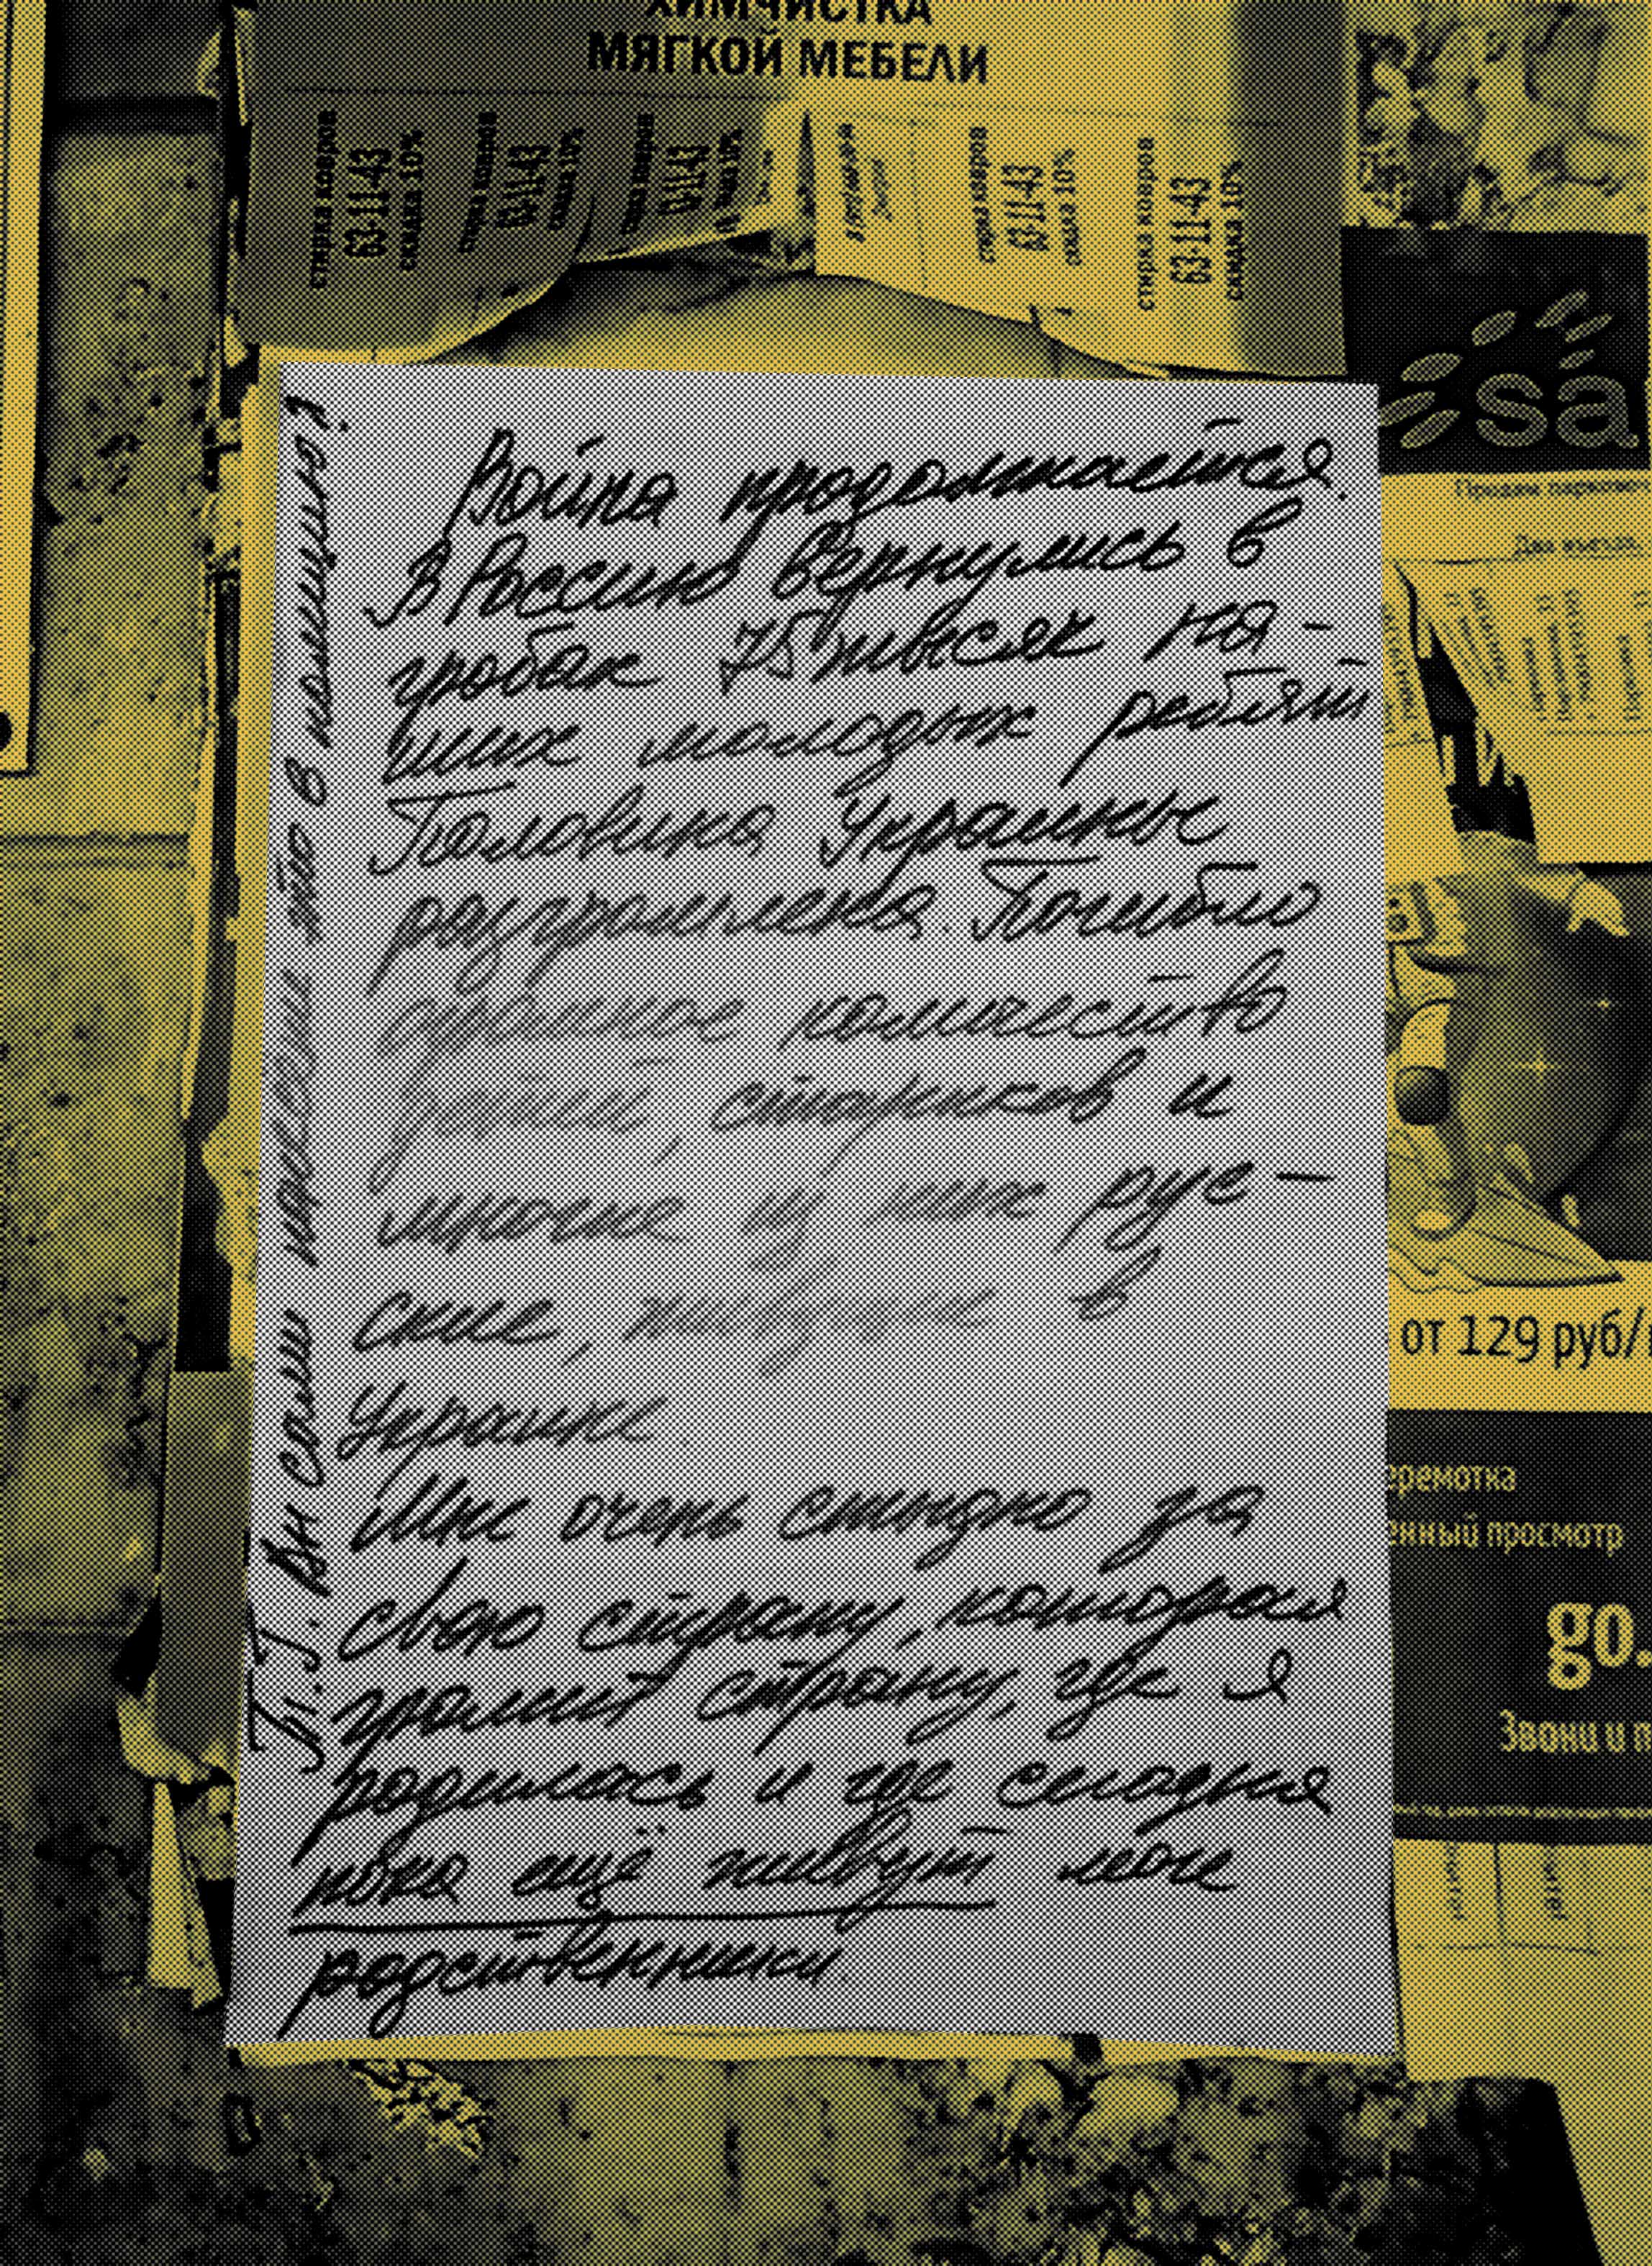 ХИМЧИСТКА
МЯГКОЙ МЕБЕЛИ
стирка ковров
63-11-43
скидка 10%
стирка ковров
63-11-43
скидка 10%
стирка ковров
63-11-43
стирка ковров
63-11-43
скидка 10%
стирка ковров
63-11-43
скидка 10%
sa
Война продолжается.
В Россию вернулись в
гробах 75 тысяч на-
ших молодых ребят
Половина Украины
разгромлена. Погибло
огромное количество
детей, стариков и
многие из них рус-
ские, живущие в
Украине.
Мне очень стыдно за
свою страну, которая
громит страну, где я
родилась и где сегодня
пока ещё живут мои
родственники.
П.Г. Вы сами на это в полицию?
от 129 руб/
еремотка
енный просмотр
go.
Звони и п